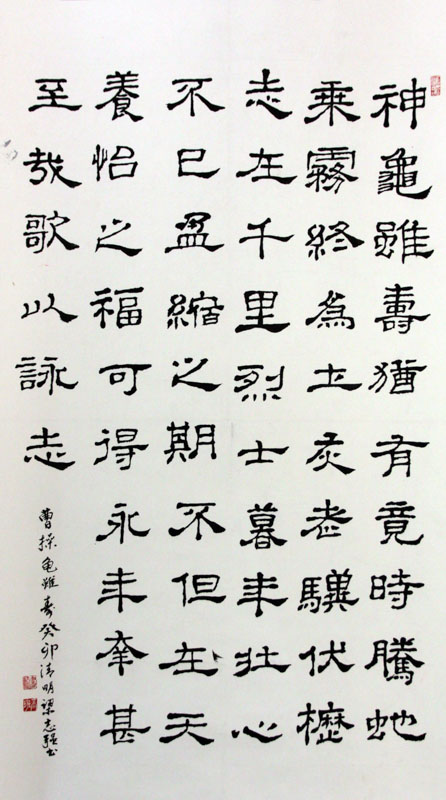 神龜雖壽猶有竟時騰虵
乘霧終為土灰老驥伏櫪
志在千里烈士暮年壯心
不已盈縮之期不但在天
養怡之福可得永年幸甚
至哉歌以詠志
曹操龟雖壽癸卯清明志强书